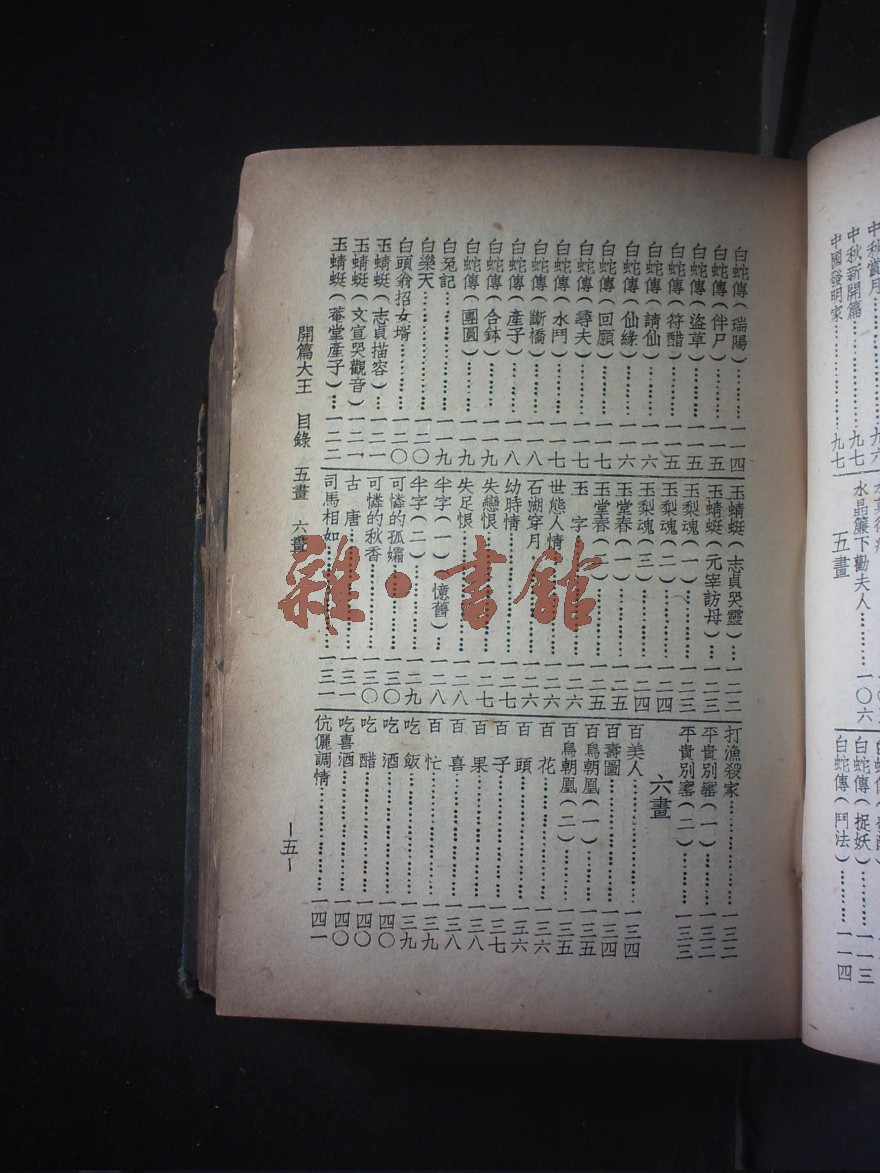 中秋賞月……九六
中秋新開篇……九七
中國發明家……九七
水晶簾下勸夫人………一〇六
五畫
白蛇傳(捉妖)……一一三
白蛇傳(鬥法)……一一四
白蛇傳(瑞陽)………一一四
白蛇傳(伴尸)………一一五
白蛇傳(盜草)………一一五
白蛇傳(符醋)………一一五
白蛇傳(請仙)………一一六
白蛇傳(仙緣)………一一六
白蛇傳(回願)………一一七
白蛇傳(尋夫)………一一七
白蛇傳(水鬥)………一一七
白蛇傳(斷橋)………一一八
白蛇傳(產子)………一一八
白蛇傳(合鉢)………一一九
白蛇傳(團圓)………一一九
白兔記………一一九
白樂天………一二〇
白頭翁招女壻………一二〇
玉蜻蜓(志貞描容)…一二一
玉蜻蜓(文宣哭觀音)…一二一
玉蜻蜓(菴堂產子)…一二二
玉蜻蜓(志貞哭靈)…一二二
玉蜻蜓(元宰訪母)…一二三
玉梨魂(一)………一二三
玉梨魂(二)………一二四
玉梨魂(三)………一二四
玉堂春(一)………一二五
玉堂春(二)………一二五
玉 字………一二六
世態人情………一二六
石湖穿月………一二六
幼時情………一二七
失戀恨………一二七
失足恨………一二八
半字(一) 憶舊)…一二八
半字(二)………一二九
可憐的孤孀………一三〇
可憐的秋香………一三〇
古 唐………一三一
司馬相如………一三一
打漁殺家………一三二
平貴別窰(一)………一三二
平貴別窰(二)………一三三
六畫
百美人………一三四
百壽圖………一三四
百鳥朝凰(一)………一三五
百鳥朝凰(二)………一三五
百 花………一三六
百 頭………一三六
百 子………一三七
百 果………一三八
百 喜………一三八
百 忙………一三九
吃 飯………一三九
吃 酒………一四〇
吃 醋………一四〇
吃喜酒………一四〇
伉儷調情………一四一
開篇大王 目錄 五畫 六畫
—五—
雜·書館